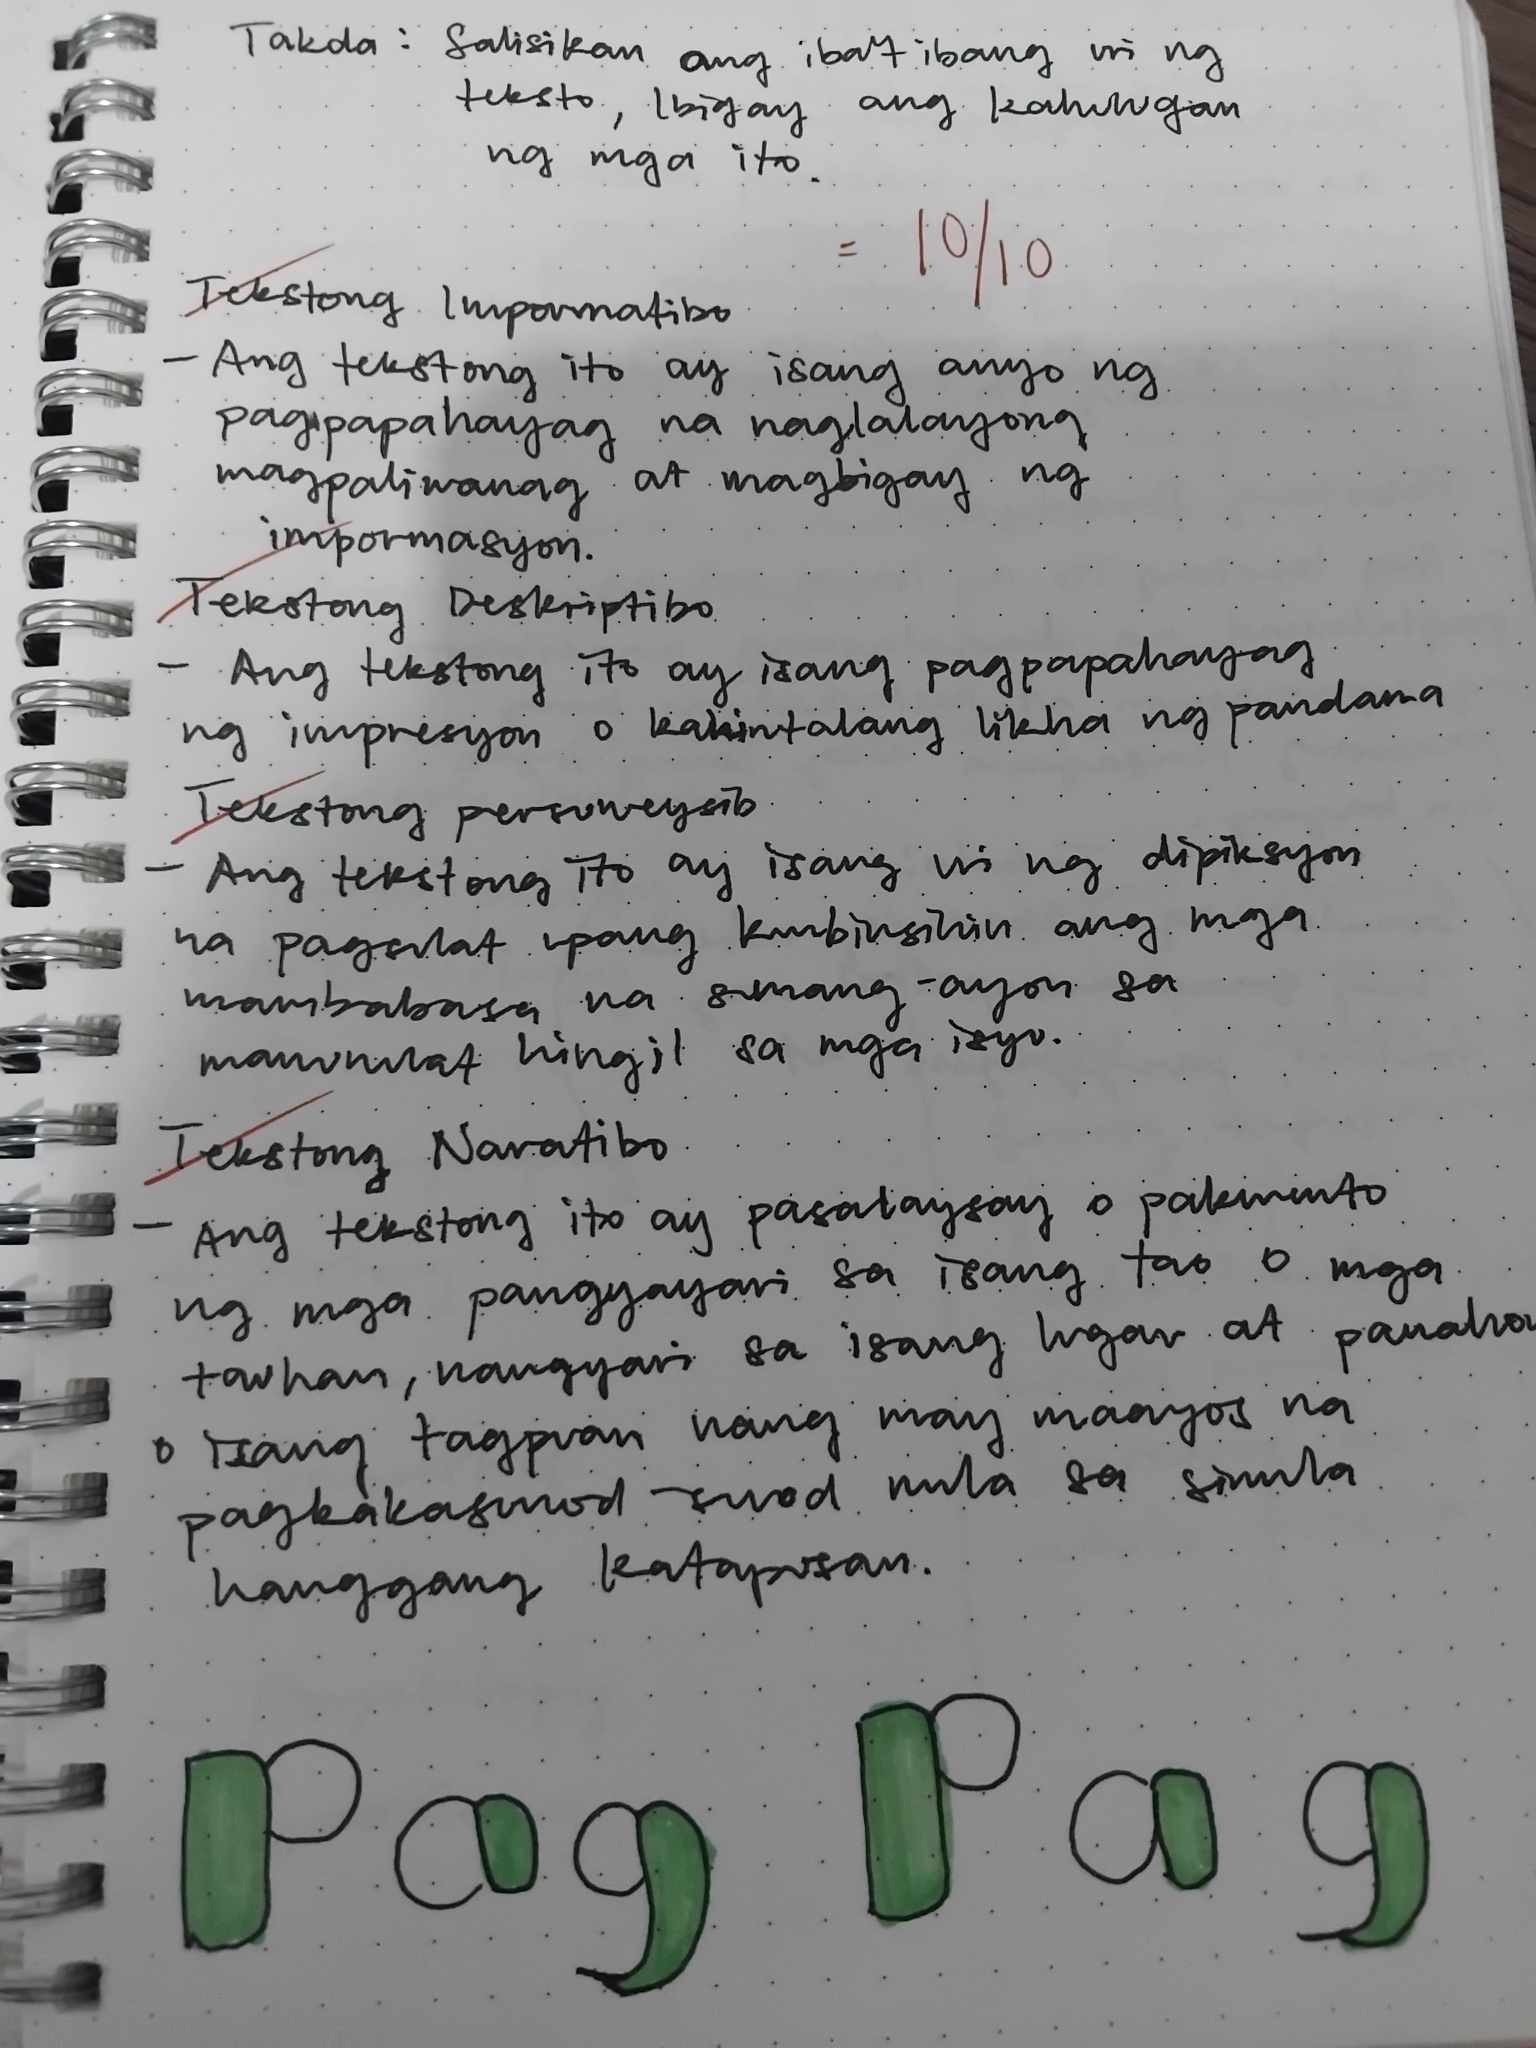 Takda: Salisikan ang iba't ibang uri ng
teksto, Ibigay ang kahulugan
ng mga ito.
= 10/10
Tekstong Impormatibo
- Ang tekstong ito ay isang anyo ng
pagpapahayag na naglalayong
magpaliwanag at magbigay ng
impormasyon.
Tekstong Deskriptibo
- Ang tekstong ito ay isang pagpapahayag
ng impresyon o kakintalang likha ng pandama
Tekstong persuweysib
- Ang tekstong ito ay isang uri ng dipiksyon
na pagsulat upang kumbinsihin ang mga
mambabasa na sumang-ayon sa
manunulat hingil sa mga isyu.
Tekstong Naratibo
- Ang tekstong ito ay pasalaysay o pakwento
ng mga pangyayari sa isang tao o mga
tauhan, nangyari sa isang lugar at panahon
o isang tagpuan nang may maayos na
pagkakasunod-sunod mula sa simula
hanggang katapusan.
Pag Pag